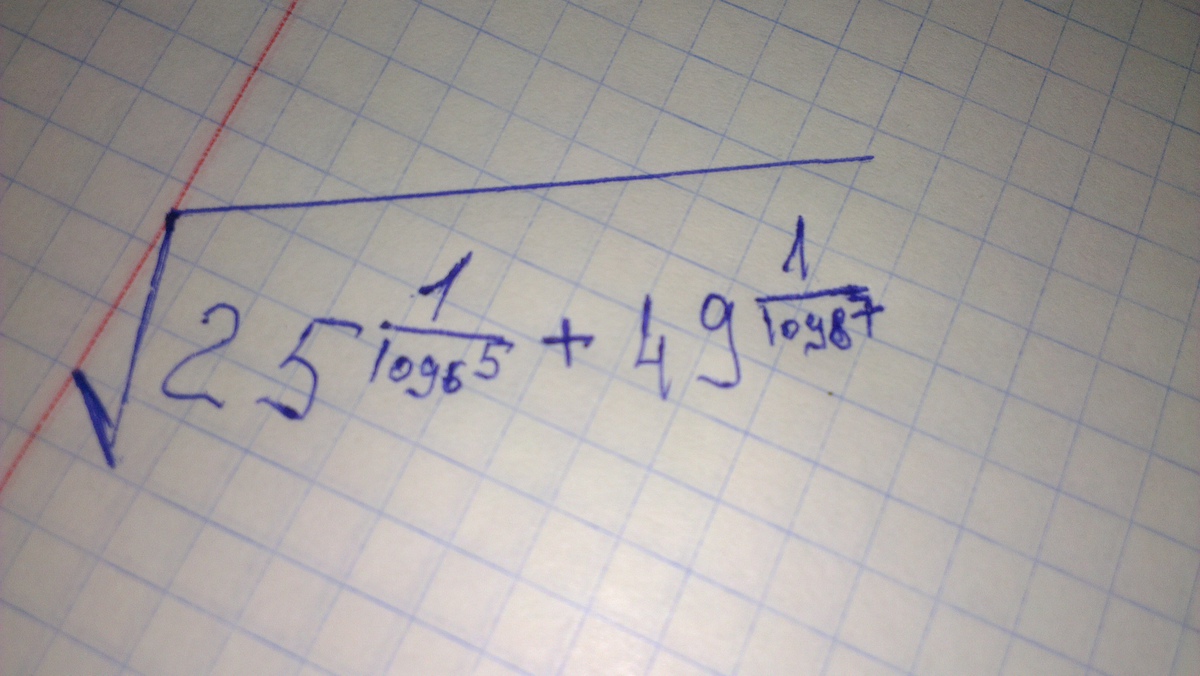 √(25^(1/log₆5) + 49^(1/log₈7))